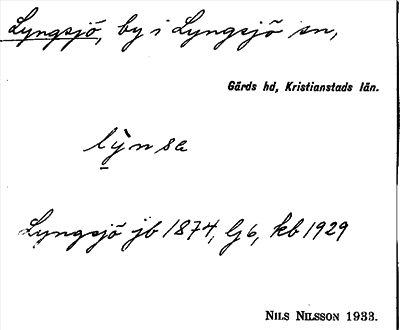 Lyngsjö, by i Lyngsjö sn,
Gärds hd, Kristianstads län.
lỳnsa
Lyngsjö jb 1874, Gj 6, kb 1929
Nils Nilsson 1933.